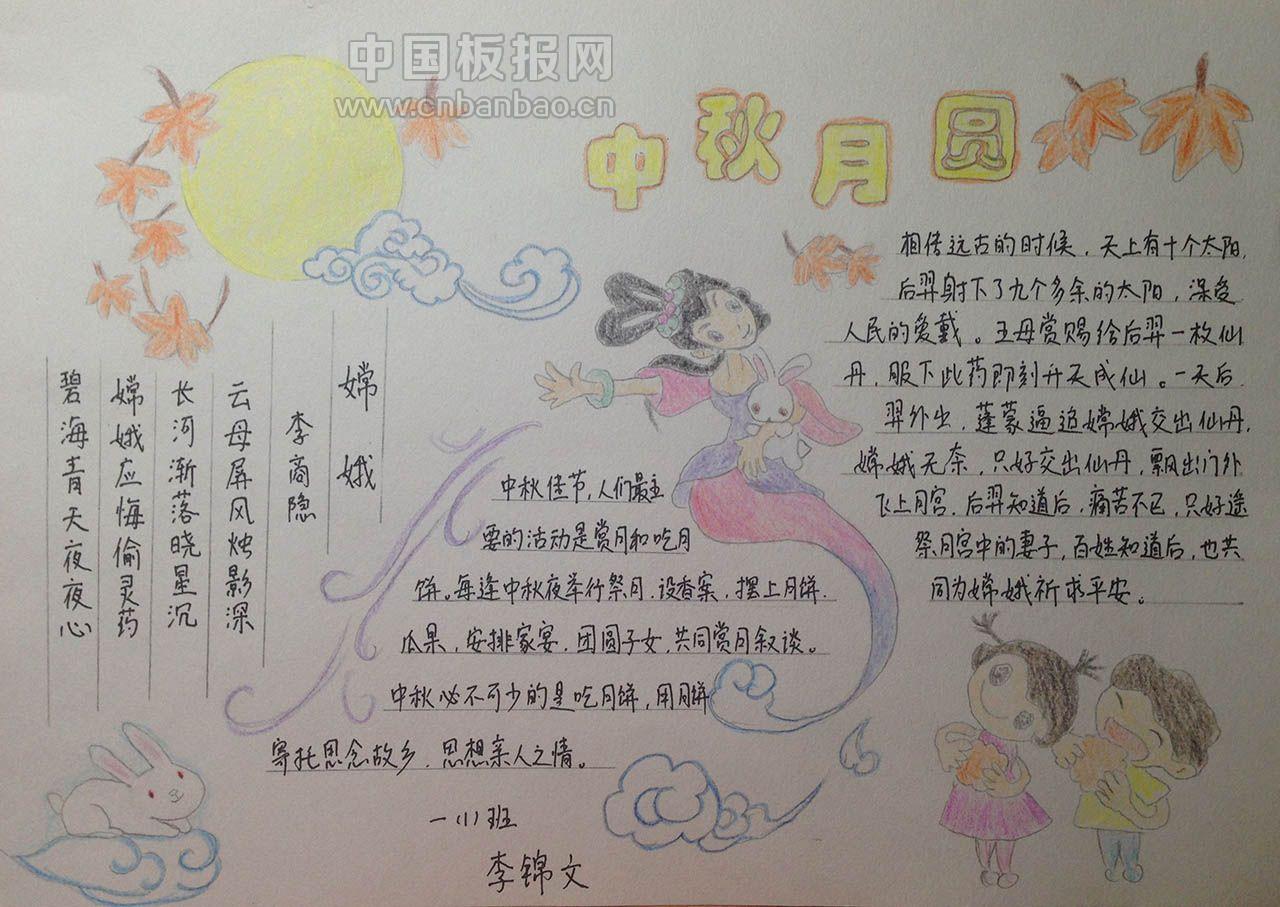 中国板报网
www.cnbanbao.cn
中秋月圆
嫦娥
李商隐
云母屏风烛影深
长河渐落晓星沉
嫦娥应悔偷灵药
碧海青天夜夜心
中秋佳节,人们最主
要的活动是赏月和吃月
饼。每逢中秋夜举行祭月.设香案,摆上月饼.
瓜果,安排家宴,团圆子女,共同赏月叙谈。
中秋必不可少的是吃月饼,用月饼
寄托思念故乡.思想亲人之情。
一(1)班
李锦文
相传远古的时候,天上有十个太阳.
后羿射下了九个多余的太阳,深受
人民的爱戴。王母赏赐给后羿一枚仙
丹,服下此药即刻升天成仙。一天后
羿外出,蓬蒙逼迫嫦娥交出仙丹.
嫦娥无奈,只好交出仙丹,飘出门外
飞上月宫.后羿知道后,痛苦不已,只好遥
祭月宫中的妻子,百姓知道后,也共
同为嫦娥祈求平安。